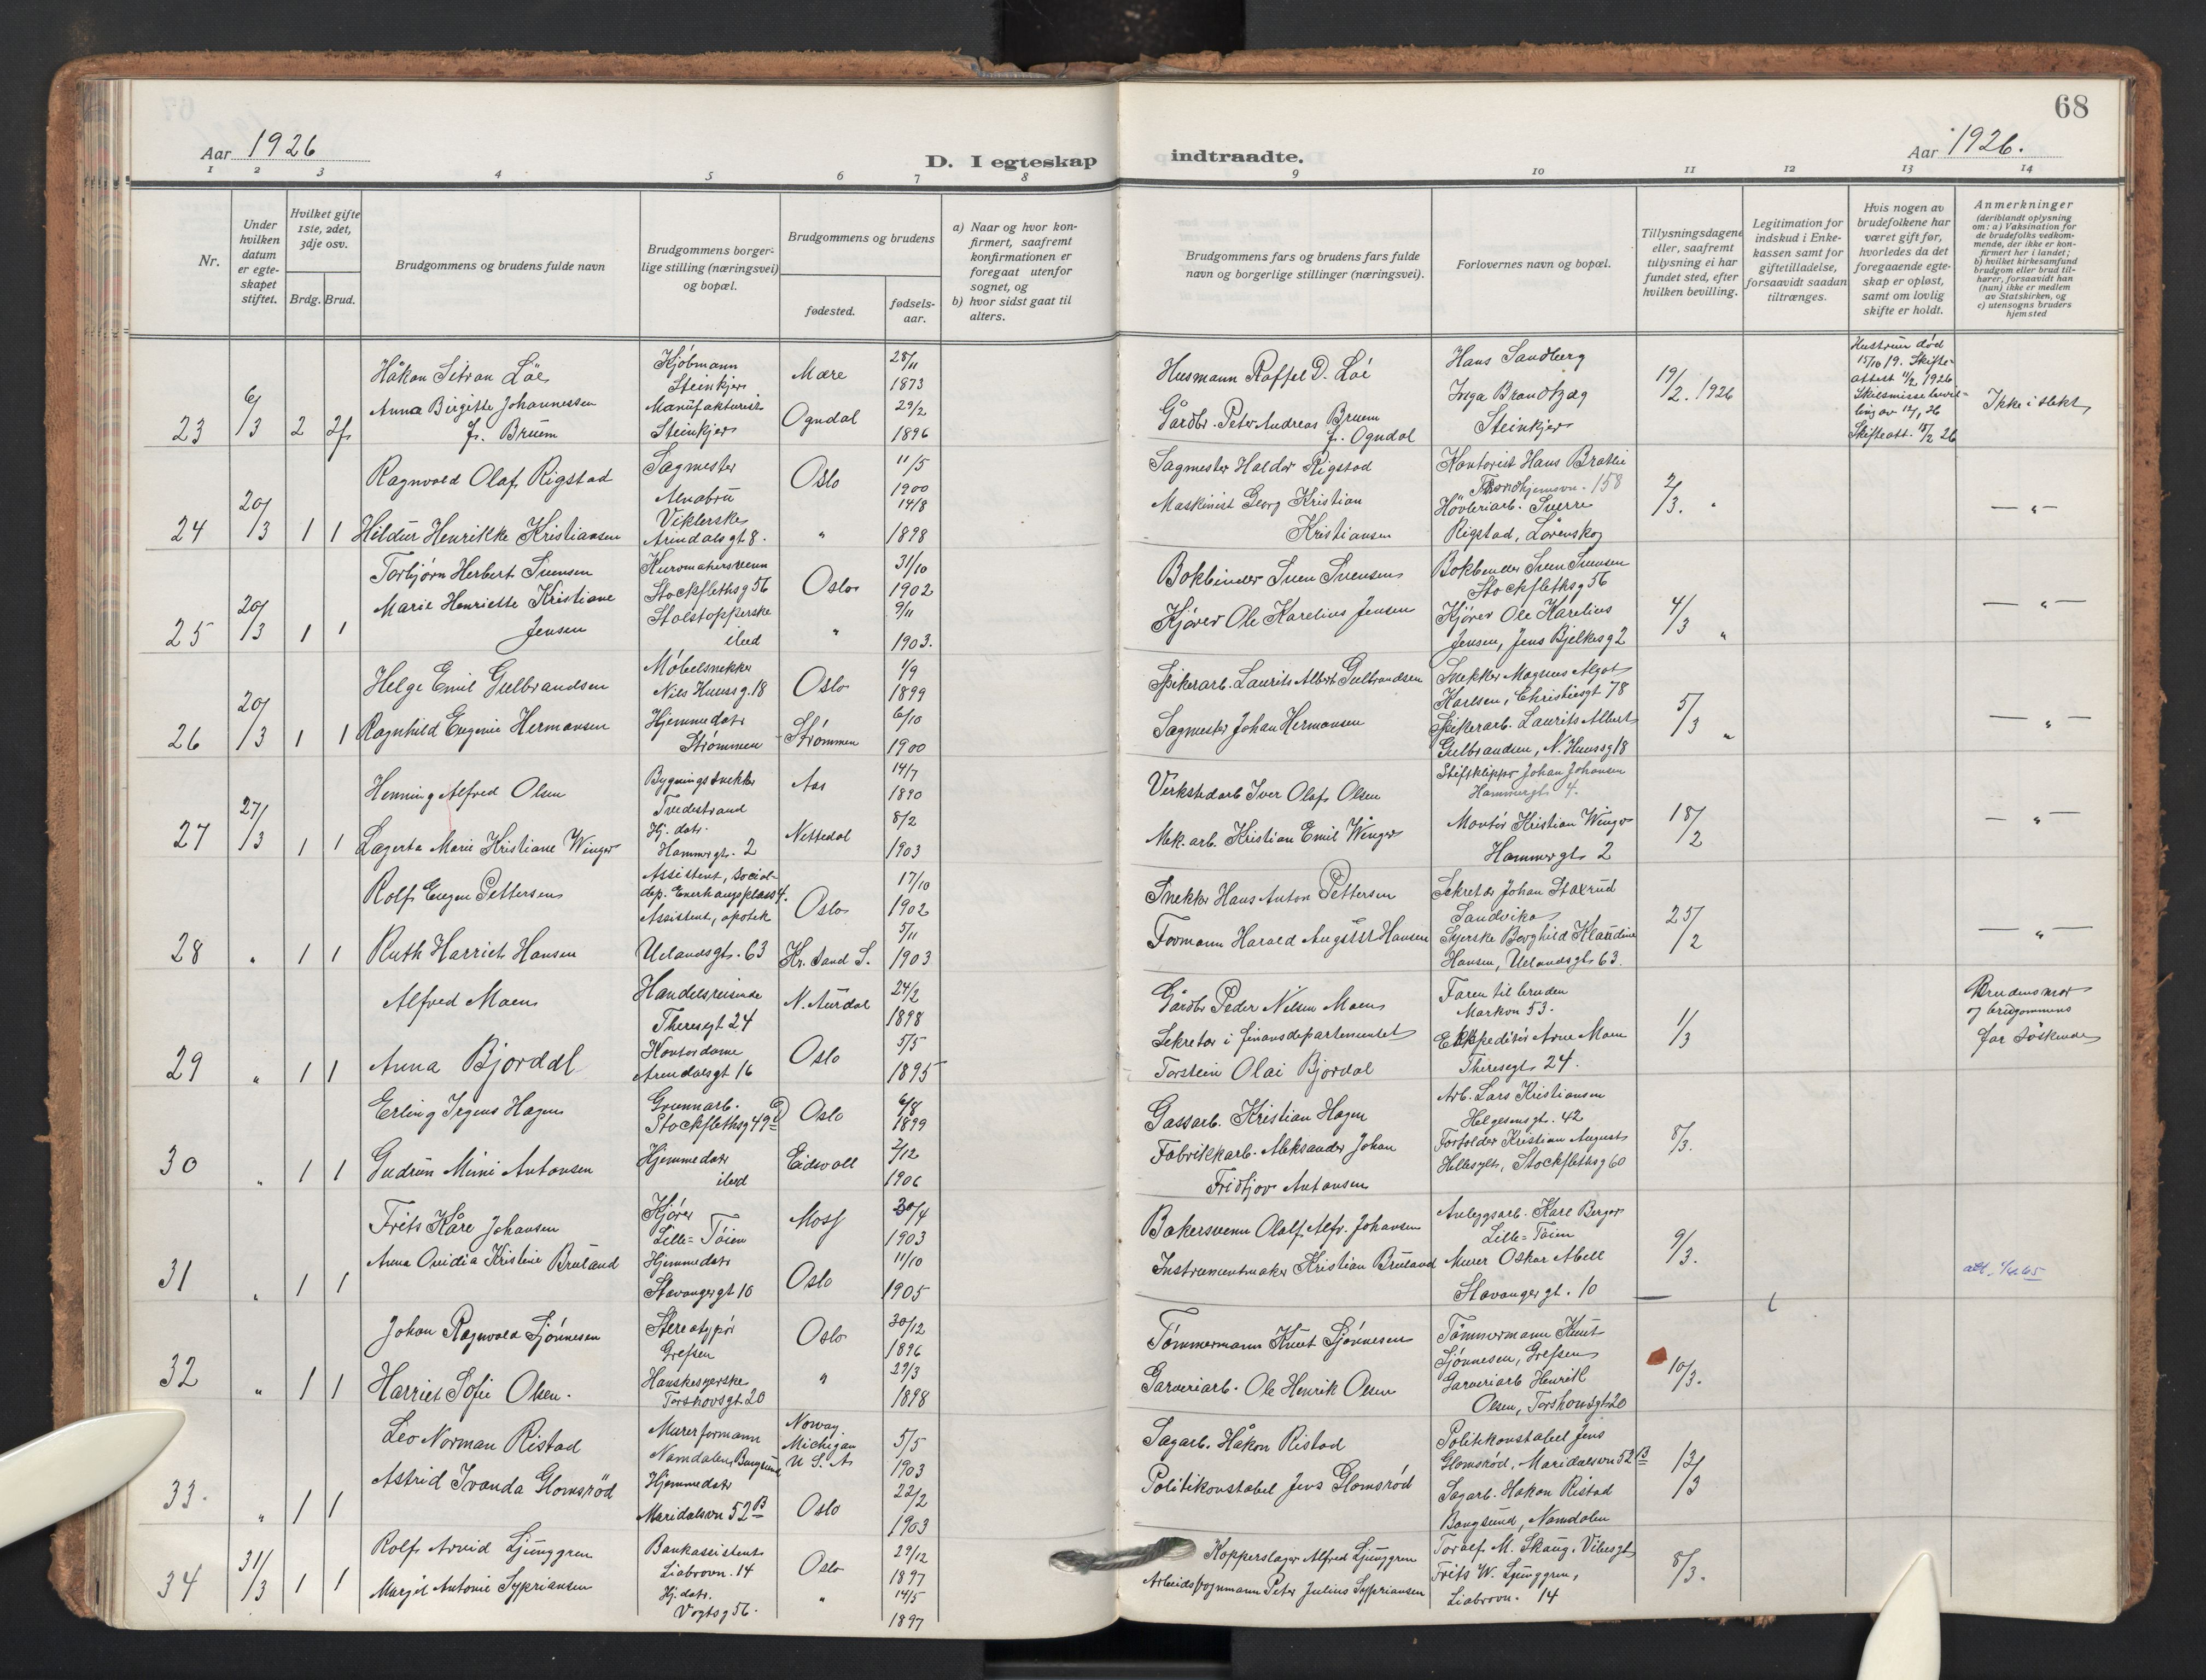 68
Aar 1926
D. I egteskap indtraadte.
Aar 1926.
1 2 3 4 5 6 7 8 9 10 11 12 13 14
Nr.
Under hvilken datum er egteskapet stiftet.
Hvilket gifte 1ste, 2det, 3dje osv.
Brdg. Brud.
Brudgommens og brudens fulde navn
Brudgommens borgerlige stilling (næringsvei) og bopæl.
Brudgommens og brudens
fødested.
fødselsaar.
a) Naar og hvor konfirmert, saafremt konfirmationen er foregaat utenfor sognet, og
b) hvor sidst gaat til alters.
Brudgommens fars og brudens fars fulde navn og borgerlige stillinger (næringsvei).
Forlovernes navn og bopæl.
Tillysningsdagene eller, saafremt tillysning ei har fundet sted, efter hvilken bevilling.
Legitimation for indskud i Enkekassen samt for giftetilladelse, forsaavidt saadan tiltrænges.
Hvis nogen av brudefolkene har været gift før, hvorledes da det foregaaende egteskap er opløst, samt om lovlig skifte er holdt.
Anmerkninger
(deriblandt oplysning om: a) Vaksination for de brudefolks vedkommende, der ikke er konfirmert her i landet; b) hvilket kirkesamfund brudgom eller brud tilhører, forsaavidt han (hun) ikke er medlem av Statskirken, og c) utensogns bruders hjemsted
23 6/3 2 2f
Håkon Sitran Löe Kjøbmann Steinkjer Mære 28/11 1873
Anna Birgitte Johannessen f. Bruem Manufakturist Steinkjer Ogndal 29/2 1896
Husmann Raffel D. Löe
Gårdbr. Peter Andreas Bruem f. Ogndal
Hans Sandberg
Inga Brandtzæg
Steinkjer
19/2. 1926
Hustrum död 15/10 19. Skifteattest 11/2 1926
Skilsmissebevilling av 12/1 26
Skifteatt. 15/2 26
Ikke i slekt
24 20/3 1 1
Ragnvald Olaf Rigstad Sagmester Alnabru Oslo 11/5 1900
Hildur Henrikke Kristiansen Viklerske Arendalsgt 8. " 14/8 1898
Sagmester Haldor Rigstad
Maskinist Georg Kristian Kristiansen
Kontorist Hans Bratlie
Trondhjemsvn. 158
Høvleriarb. Sverre
Rigstad, Lörenskog
2/3. "
— " —
25 20/3 1 1
Torbjørn Herbert Svensen Kuromakersvenn Stockflethsg 56 Oslo 31/10 1902
Marie Henriette Kristiane Jensen Stolstopperske ibid " 9/11 1903.
Bokbinder Sven Svensen
Kjører Ole Karelius Jensen
Bokbinder Sven Svensen
Stockflethsg 56
Kjører Ole Karelius
Jensen, Jens Bjelkesg 2
4/3 "
— " —
26 20/3 1 1
Helge Emil Gulbrandsen Møbelsnekker Nils Huusg. 18 Oslo 1/9 1899
Ragnhild Eugenie Hermansen Hjemmedatr Strømmen Strømmen 6/10 1900
Spikerarb. Laurits Albert Gulbrandsen
Sagmester Johan Hermansen
Snekker Magnus Algot
Karlsen, Christiesgt 78
Spikerarb. Laurits Albert
Gulbrandsen, N. Huusg 18
5/3 "
— " —
27 27/3 1 1
Henning Alfred Olsen Bygningssnekker Tvedestrand Aas 14/7 1890
Lagerta Marie Kristiane Winger Hj. datr. Hammergt. 2 Nittedal 8/2 1903
Verkstedarb Iver Olaf Olsen
Mek. arb. Kristian Emil Winger
Stiftklipper Johan Johansen
Hammergt 4.
Montør Kristian Winger
Hammergt 2
18/2
— " —
28 " 1 1
Rolf Eugen Pettersen Assistent, socialdep. Enerhaugsplass 4. Oslo 17/10 1902
Ruth Harriet Hansen Assistent, apotek Uelandsgt. 63 Kr. sand S. 5/11 1903
Snekker Hans Anton Pettersen
Formann Harald August Hansen
Sekretær Johan Staxrud
Sandvika
Syerske Borghild Klaudine
Hansen, Uelandsgt 63.
25/2
— " —
29 " 1 1
Alfred Moen Handelsreisende Theresegt 24 N. Aurdal 24/2 1898
Anna Bjordal Kontordame Arendalsgt 16 Oslo 5/5 1895
Gårdbr Peder Nilsen Moen
Sekretær i finansdepartementet
Torstein Olai Bjordal
Faren til bruden
Markvn 53.
Ekspeditör Arne Moen
Theresegt 24.
1/3
Brudens mor og brudgommens far søskende
30 " 1 1
Erling Irgens Hagen Grunnarb. Stockflethsg 49 Oslo 6/8 1899
Gudrun Mimi Antonsen Hjemmedatr ibid Eidsvoll 2/12 1906
Gassarb. Kristian Hagen
Fabrikkarb. Aleksander Johan
Fridtjov Antonsen
Arb. Lars Kristiansen
Helgesensgt. 42
Forfolder Kristian August
Hellesylt, Stockflethsg 60
8/3.
31 " 1 1
Frits Kåre Johansen Kjører Lille-Töien Moss 30/4 1903
Anna Ovidia Kristine Bruland Hjemmedatr Stavangergt 10 Oslo 11/10 1905
Bakersvenn Olaf Alfr. Johansen
Instrumentmaker Kristian Bruland
Anleggsarb. Kåre Berger
Lille-Töien
Murer Oskar Abell
Stavangergt. 10
9/3.
32 " 1 1
Johan Ragnvald Sjønnesen Stereotypør Grefsen Oslo 30/12 1896
Harriet Sofie Olsen. Hanskesyerske Torshovsgt. 20 " 29/3 1898
Tömmermann Knut Sjønnesen
Garveriarb. Ole Henrik Olsen
Tömmermann Knut
Sjønnesen, Grefsen
Garveriarb Henrik
Olsen, Torshovsgt 20
10/3.
33. " 1 1
Leo Norman Ristad Murerformann Namdalen, Bangsund Norway Michigan U.S.A 5/5 1903
Astrid Ivanda Glomsröd Hjemmedatr Maridalsvn 52 B Oslo 22/2 1903
Sagarb. Håkon Ristad
Politikonstabel Jens Glomsröd
Politikonstabel Jens
Glomsröd, Maridalsvn 52 B
Sagarb. Håkon Ristad
Bangsund, Namdalen
12/3
34 31/3 1 1
Rolf Arvid Ljunggren Bankassistent Liabrovn. 14 Oslo 29/12 1897
Margit Antonie Sypriansen Hj. datr. Vogtsg 56. " 14/5 1897
Kopperslager Alfred Ljunggren
Arbeidsformann Peter Julius Sypriansen
Toralf M. Skaug, Vibesgt
Frits W. Ljunggren,
Liabrovn. 14
8/3.